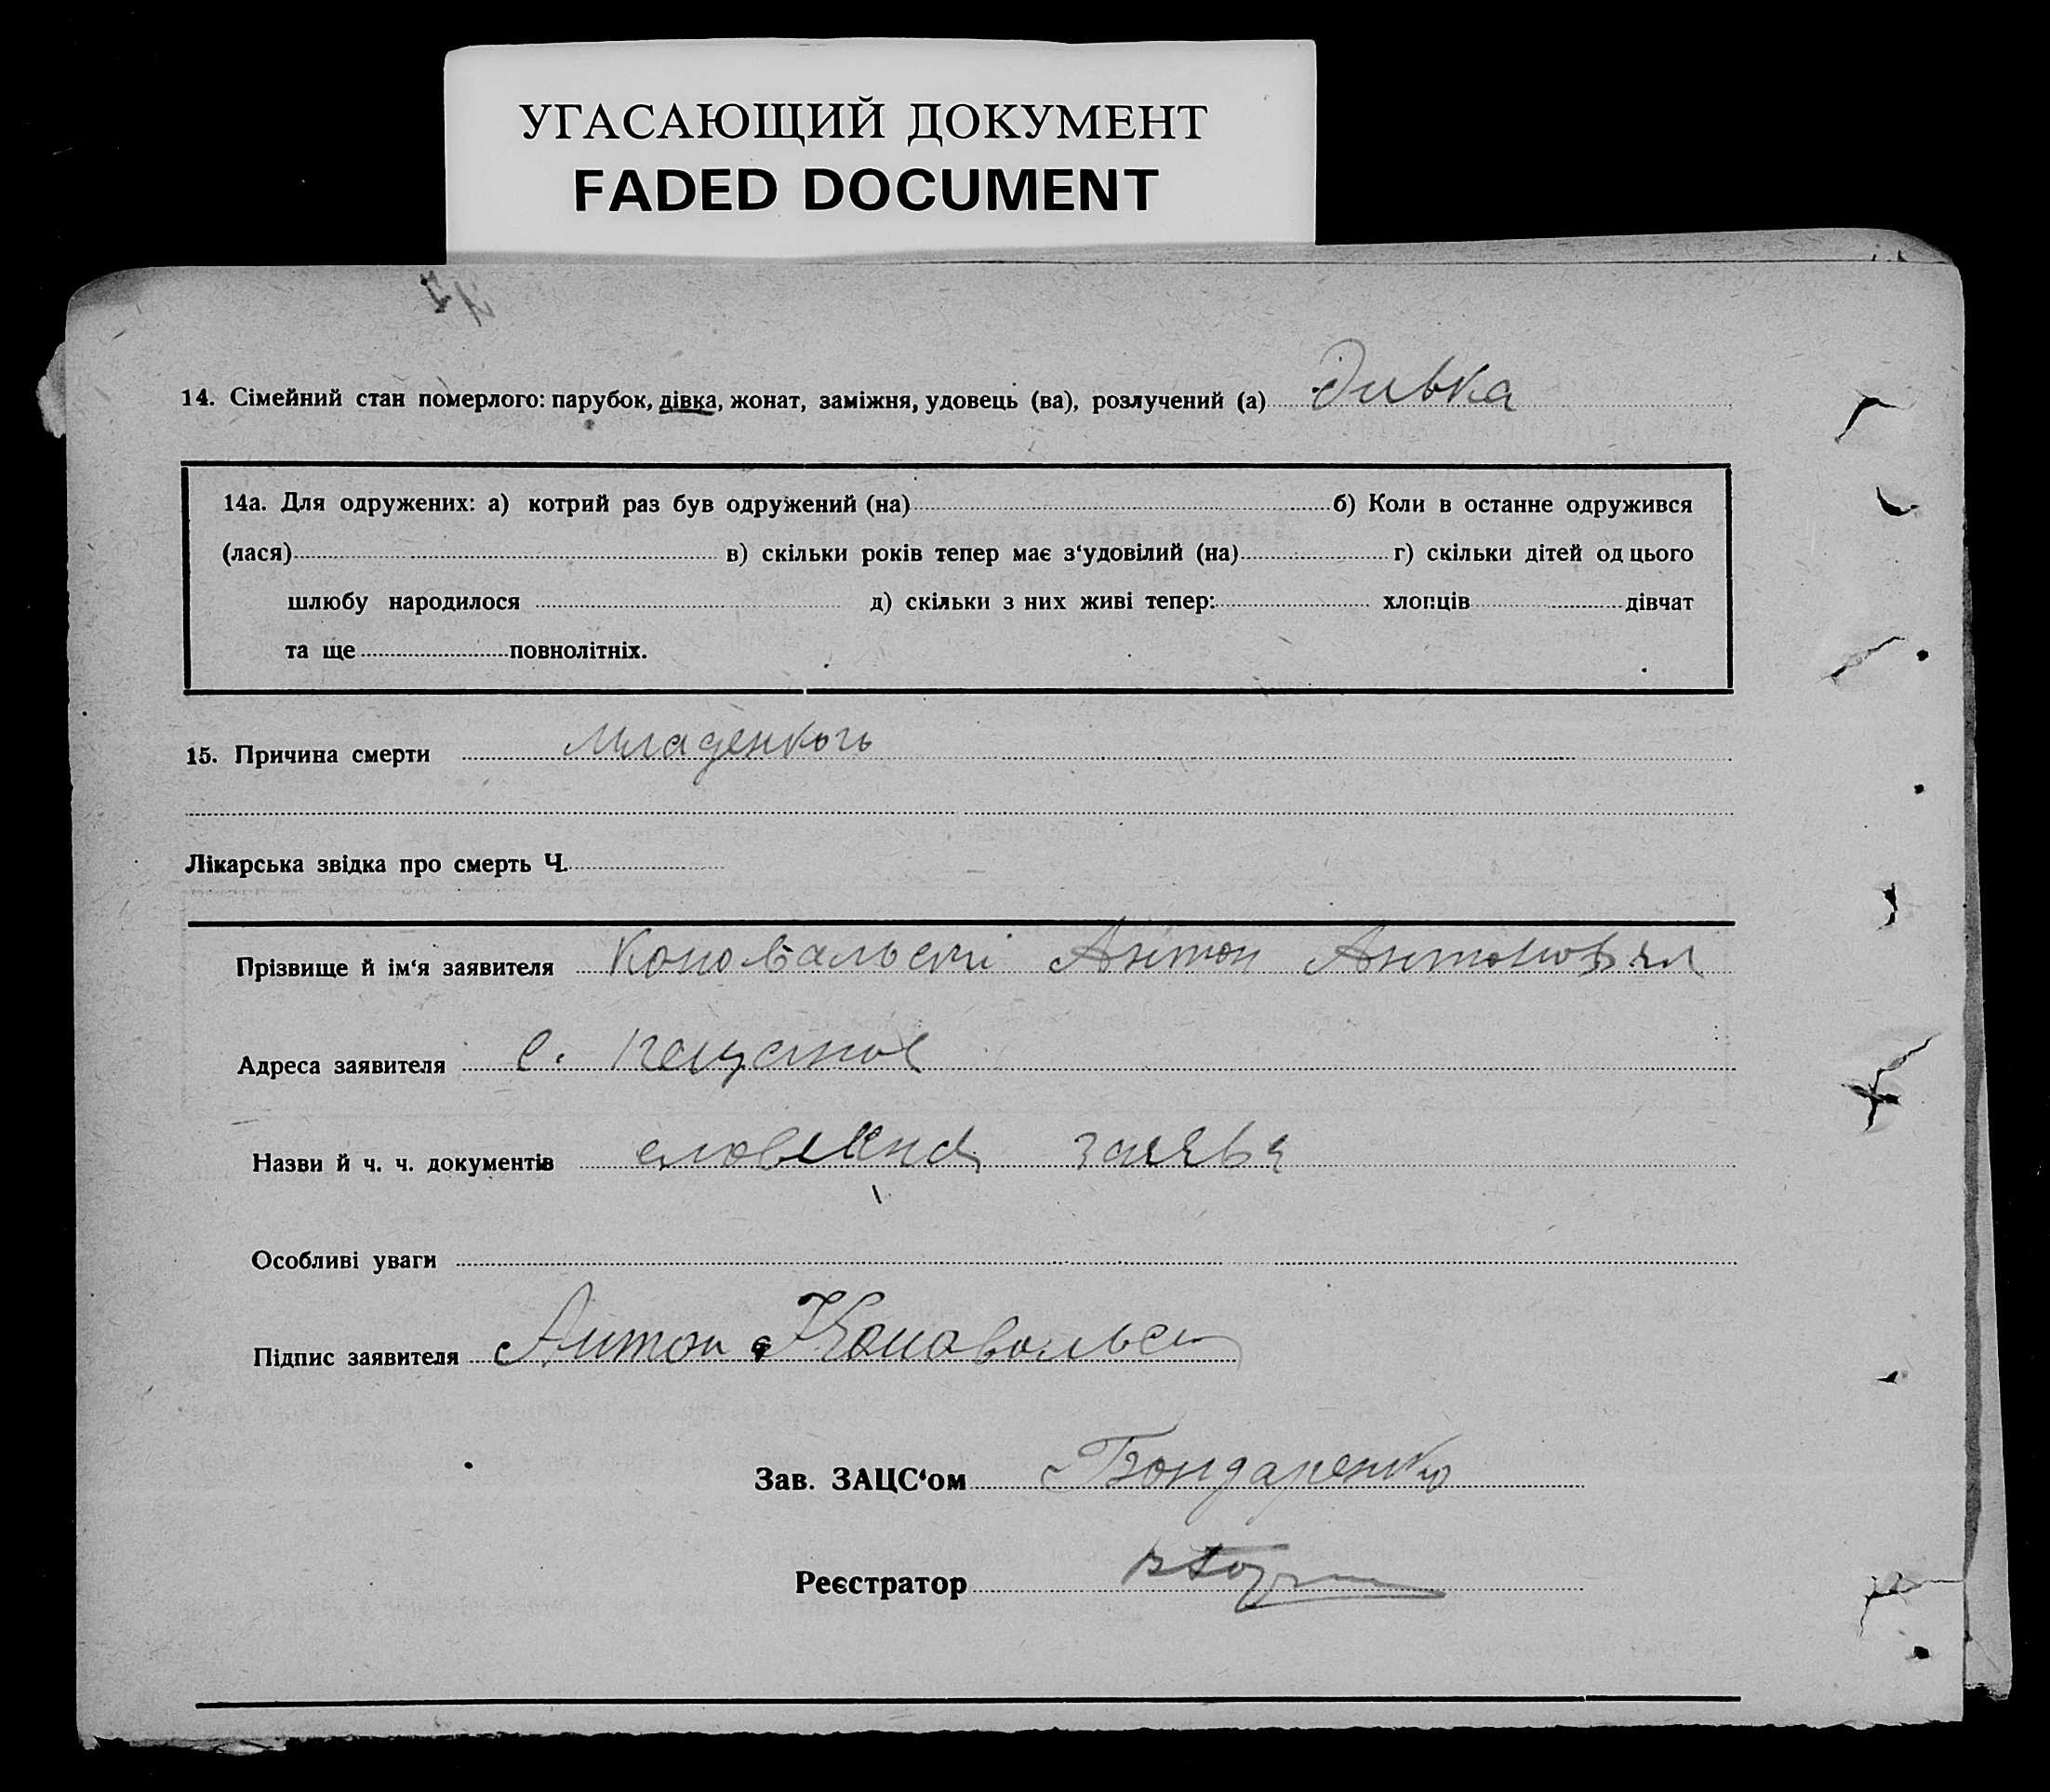 УГАСАЮЩИЙ ДОКУМЕНТ
FADED DOCUMENT
14. Сімейний стан померлого: парубок, дівка, жонат, заміжня, удовець (ва), розлучений (а) дивка
14а. Для одружених: а) котрий раз був одружений (на) б) Коли в останне одружився
(лася) в) скільки років тепер має з‘удовілий (на) г) скільки дітей од цього
шлюбу народилося д) скільки з них живі тепер: хлопців дівчат
та ще повнолітніх.
15. Причина смерти
Лікарська звідка про смерть Ч.
Прізвище й ім‘я заявителя Коновальскі Антон Антонов
Адреса заявителя с. Пещаное
Назви й ч. ч. документів словекна заява
Особливі уваги
Підпис заявителя Антон Коновальск
Зав. ЗАЦС‘ом Бондаренко
Реєстратор